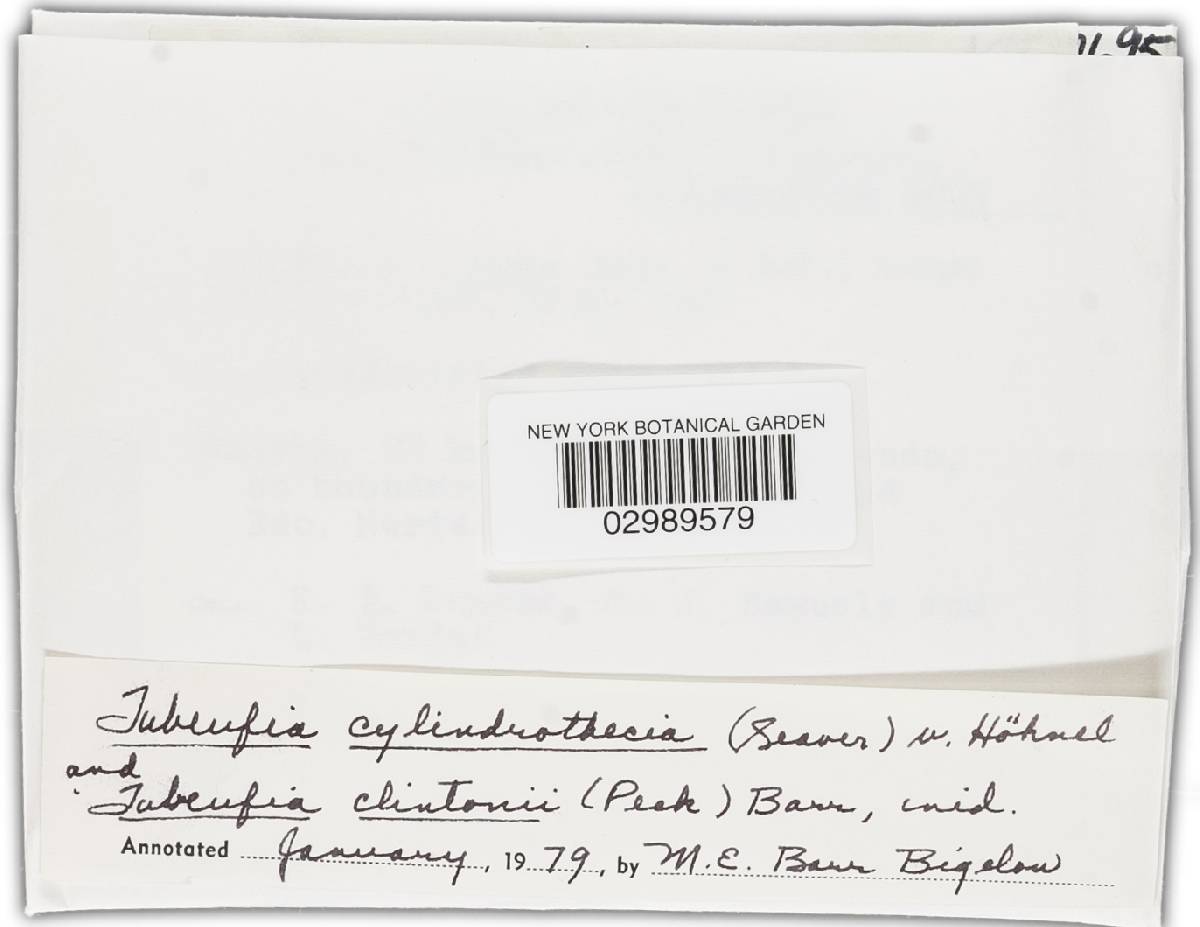 71.95
NEW YORK BOTANICAL GARDEN
02989579
Tubeufia cylindrothecia (Seaver) v. Höhnel
and
Tubeufia clintonii (Peck) Barr, ined.
Annotated January, 1979, by M.E. Barr Bigelow